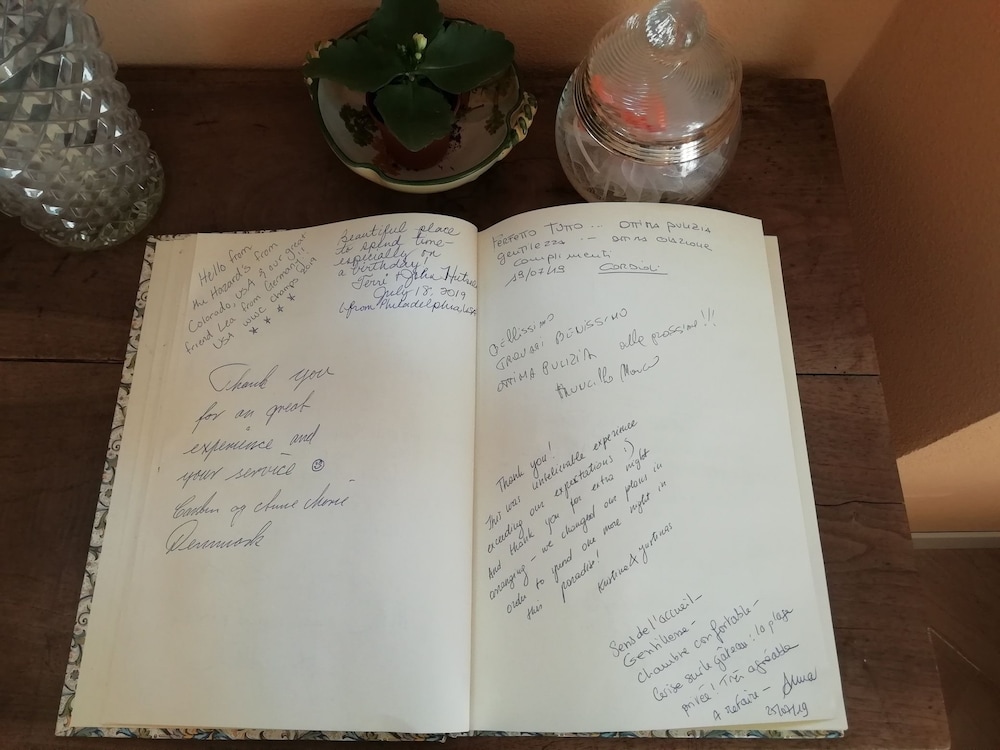 Hello from
the Hazard's from
Colorado, USA & our great
friend Lea from Germany!!
USA WWC Champs 2019
Beautiful place
to spend time—
especially on
a birthday!
Terri & John
July 18, 2019
from Philadelphia, USA
Thank you
for an great
experience and
your service ☺
og Anne Marie
Denmark
PERFETTO TUTTO ... OTTIMA PULIZIA
gentilezza ... OTTIMA COLAZIONE
complimenti
19/07/19
Bellissimo
TROVARI BENISSIMO
OTTIMA PULIZIA alla prossima!!!
Marco
Thank you!
This was unbelievable experience
exceeding our expectations :)
And thank you for extra night
arranging - we changed our plans in
order to spend one more night in
this paradise!
Kristina & Justinas
Sens de l'accueil -
Gentillesse -
Chambre confortable -
Cerise sur le gâteau : la plage
privée ! Très agréable
A refaire - Anna
25/07/19